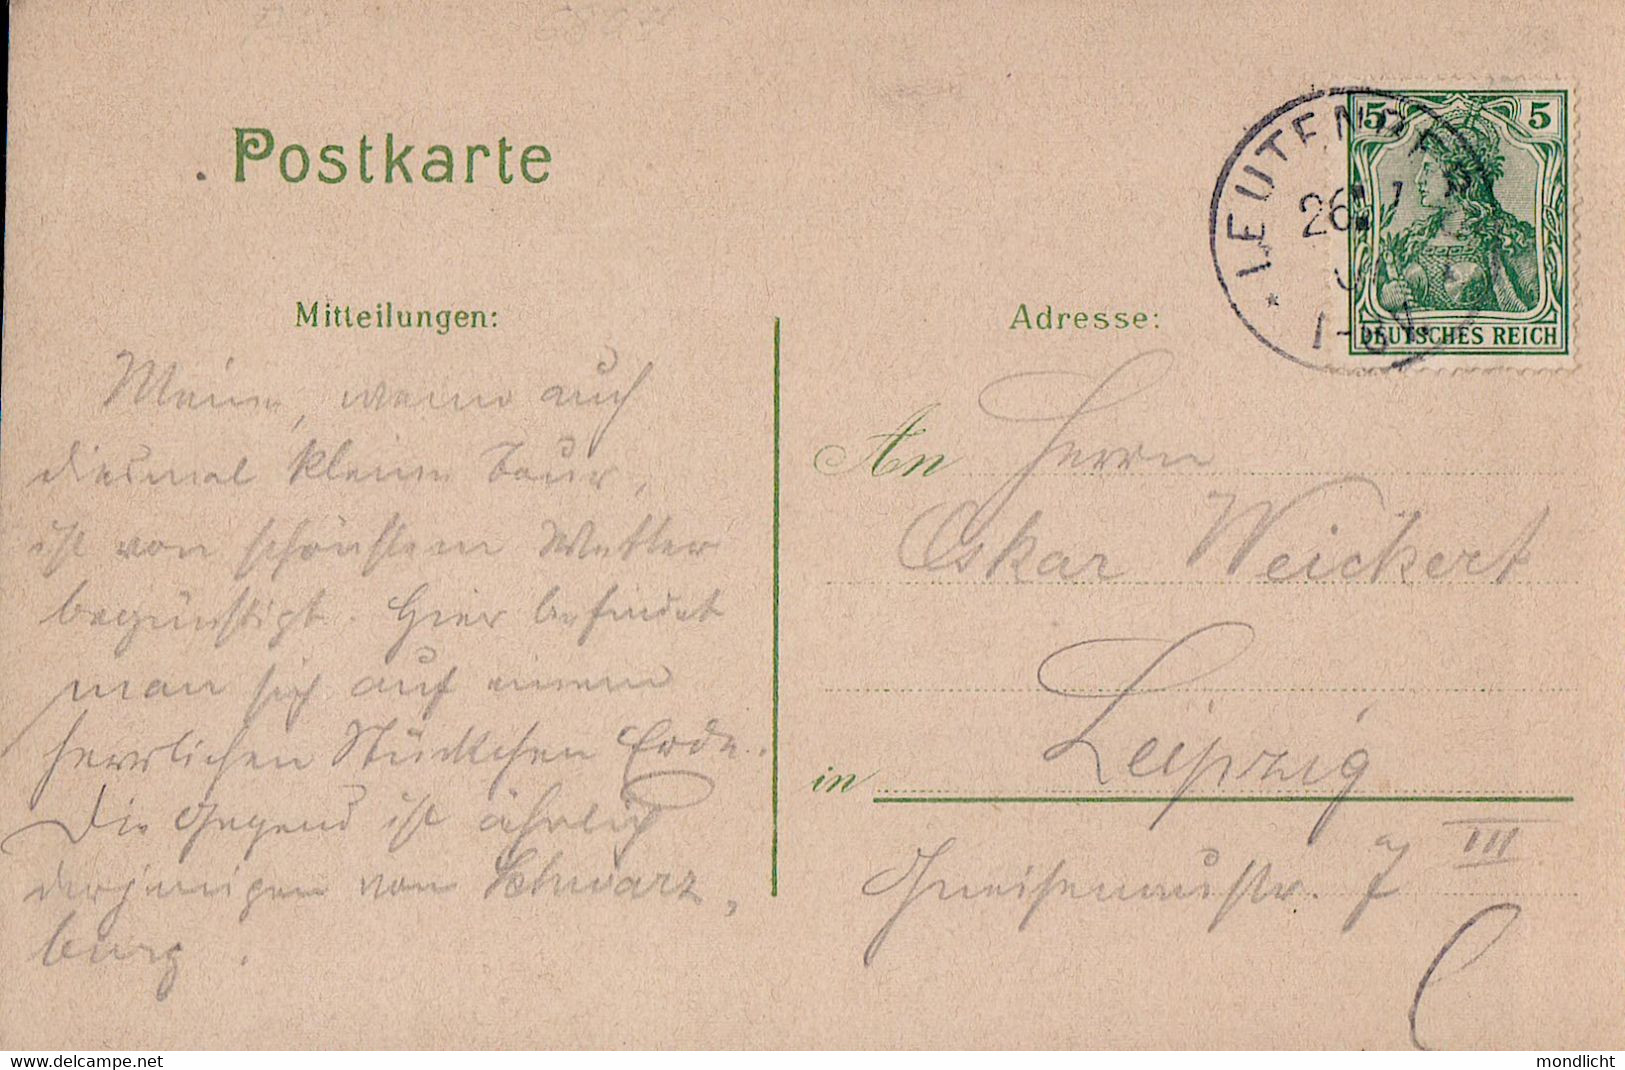 Postkarte
Mitteilungen:
Meine, wenn auch
diesmal kleine Tour,
ist von schönstem Wetter
begünstigt. Hier befindet
man sich auf einem
herrlichen Stückchen Erde.
Die Gegend ist ähnlich
derjenigen von Schwarz-
burg.
5 5
DEUTSCHES REICH
LEUTENBERG
26. 7
1-
Adresse:
An Herrn
Oskar Weickert
in Leipzig
Gneisenaustr. 7 III
delcampe.net
mondlicht